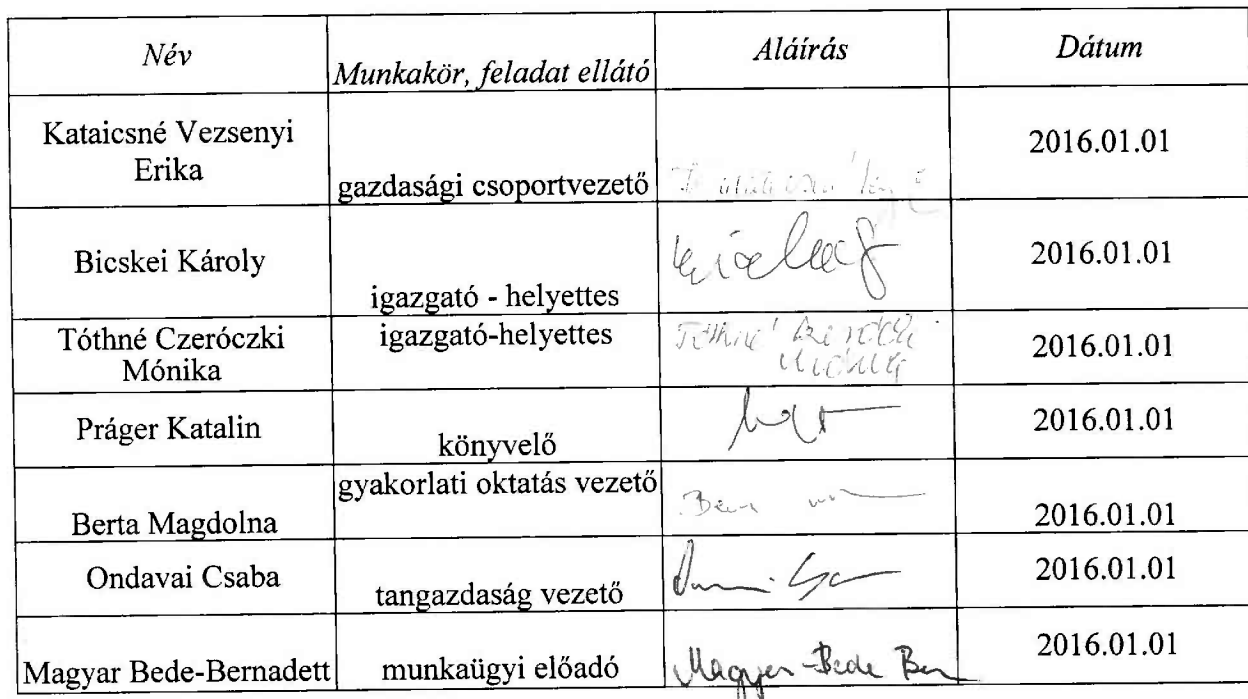 Név Munkakör, feladat ellátó Aláírás Dátum
Kataicsné Vezsenyi
Erika
gazdasági csoportvezető 2016.01.01
Bicskei Károly igazgató - helyettes 2016.01.01
Tóthné Czeróczki
Mónika
igazgató-helyettes Tóthné Czeróczki
Mónika
2016.01.01
Práger Katalin könyvelő 2016.01.01
Berta Magdolna gyakorlati oktatás vezető 2016.01.01
Ondavai Csaba tangazdaság vezető 2016.01.01
Magyar Bede-Bernadett munkaügyi előadó Magyar-Bede Ber 2016.01.01